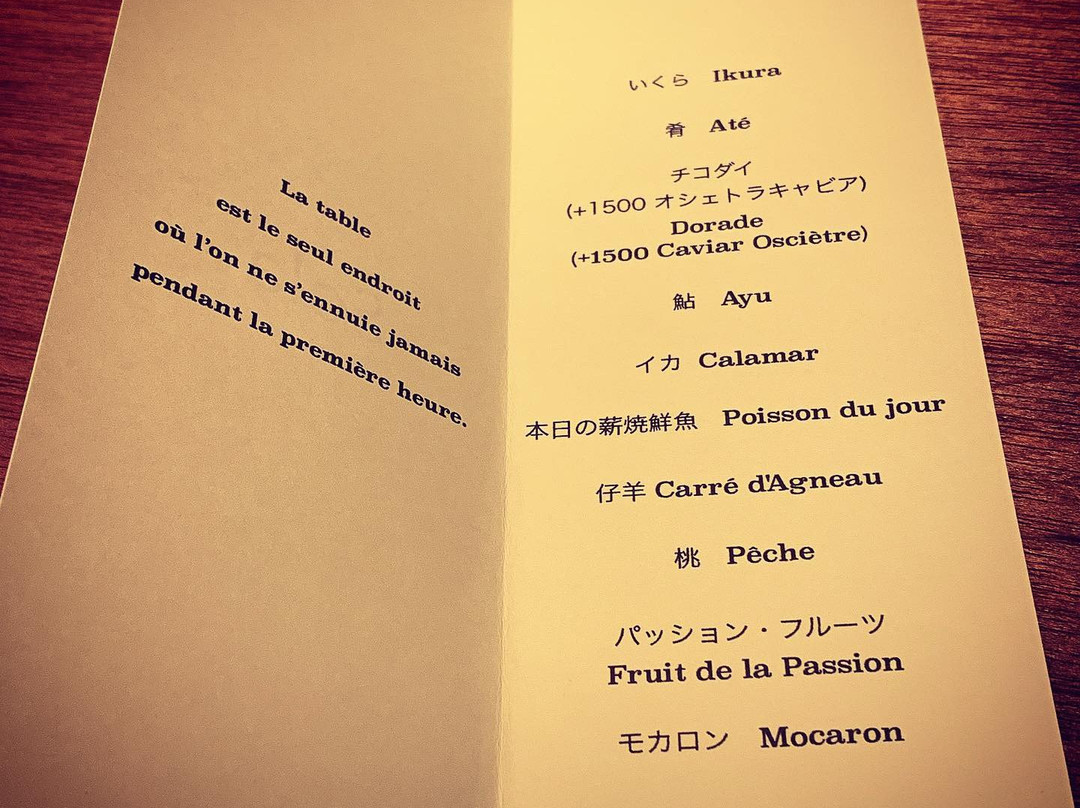 La table
est le seul endroit
où l'on ne s'ennuie jamais
pendant la première heure.
いくら Ikura
肴 Até
チコダイ
(+1500 オシェトラキャビア)
Dorade
(+1500 Caviar Osciètre)
鮎 Ayu
イカ Calamar
本日の薪焼鮮魚 Poisson du jour
仔羊 Carré d'Agneau
桃 Pêche
パッション・フルーツ
Fruit de la Passion
モカロン Mocaron